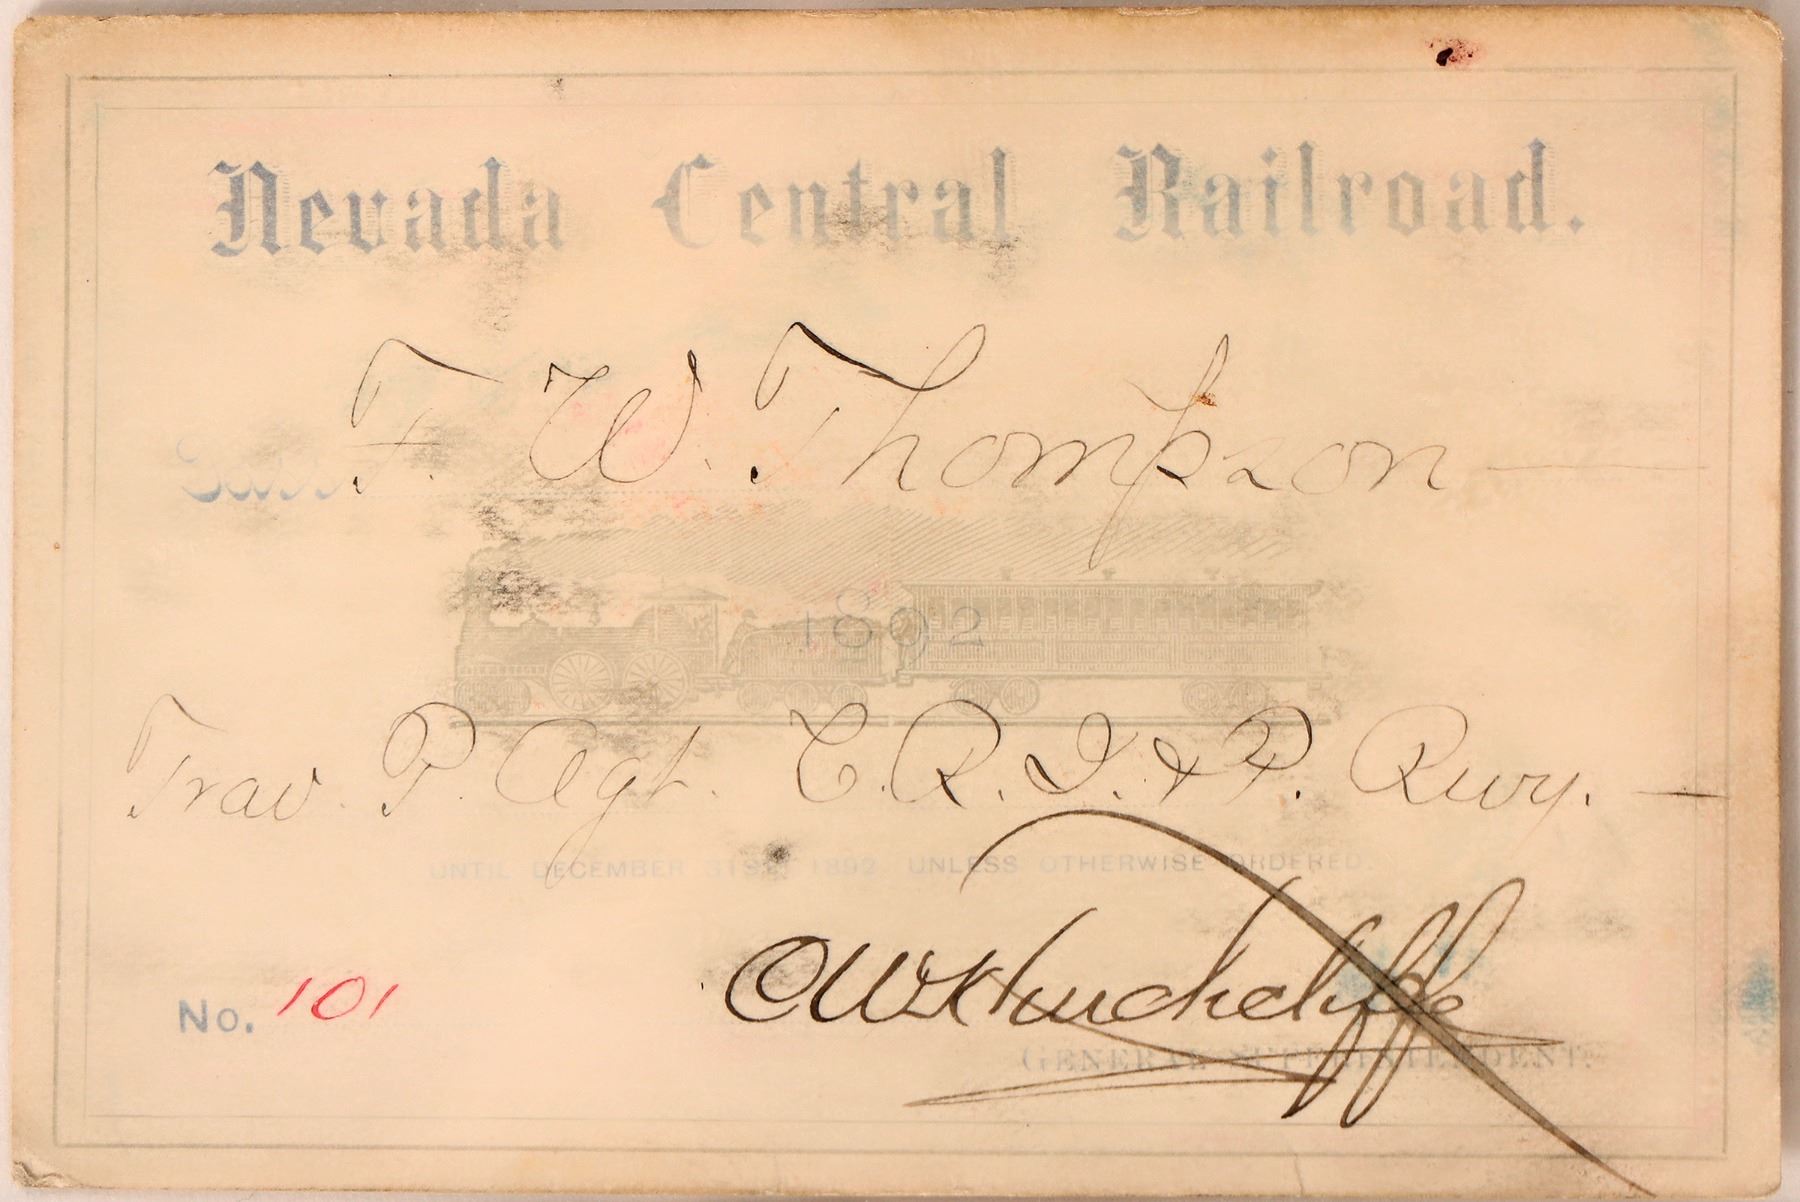 Nevada Central Railroad.
Pass F. W. Thompson
1892
Trav. P. Agt. C. R. I. & P. Rwy.
UNTIL DECEMBER 31ST 1892 UNLESS OTHERWISE ORDERED.
No. 101
Hinchcliffe
GENERAL SUPERINTENDENT.